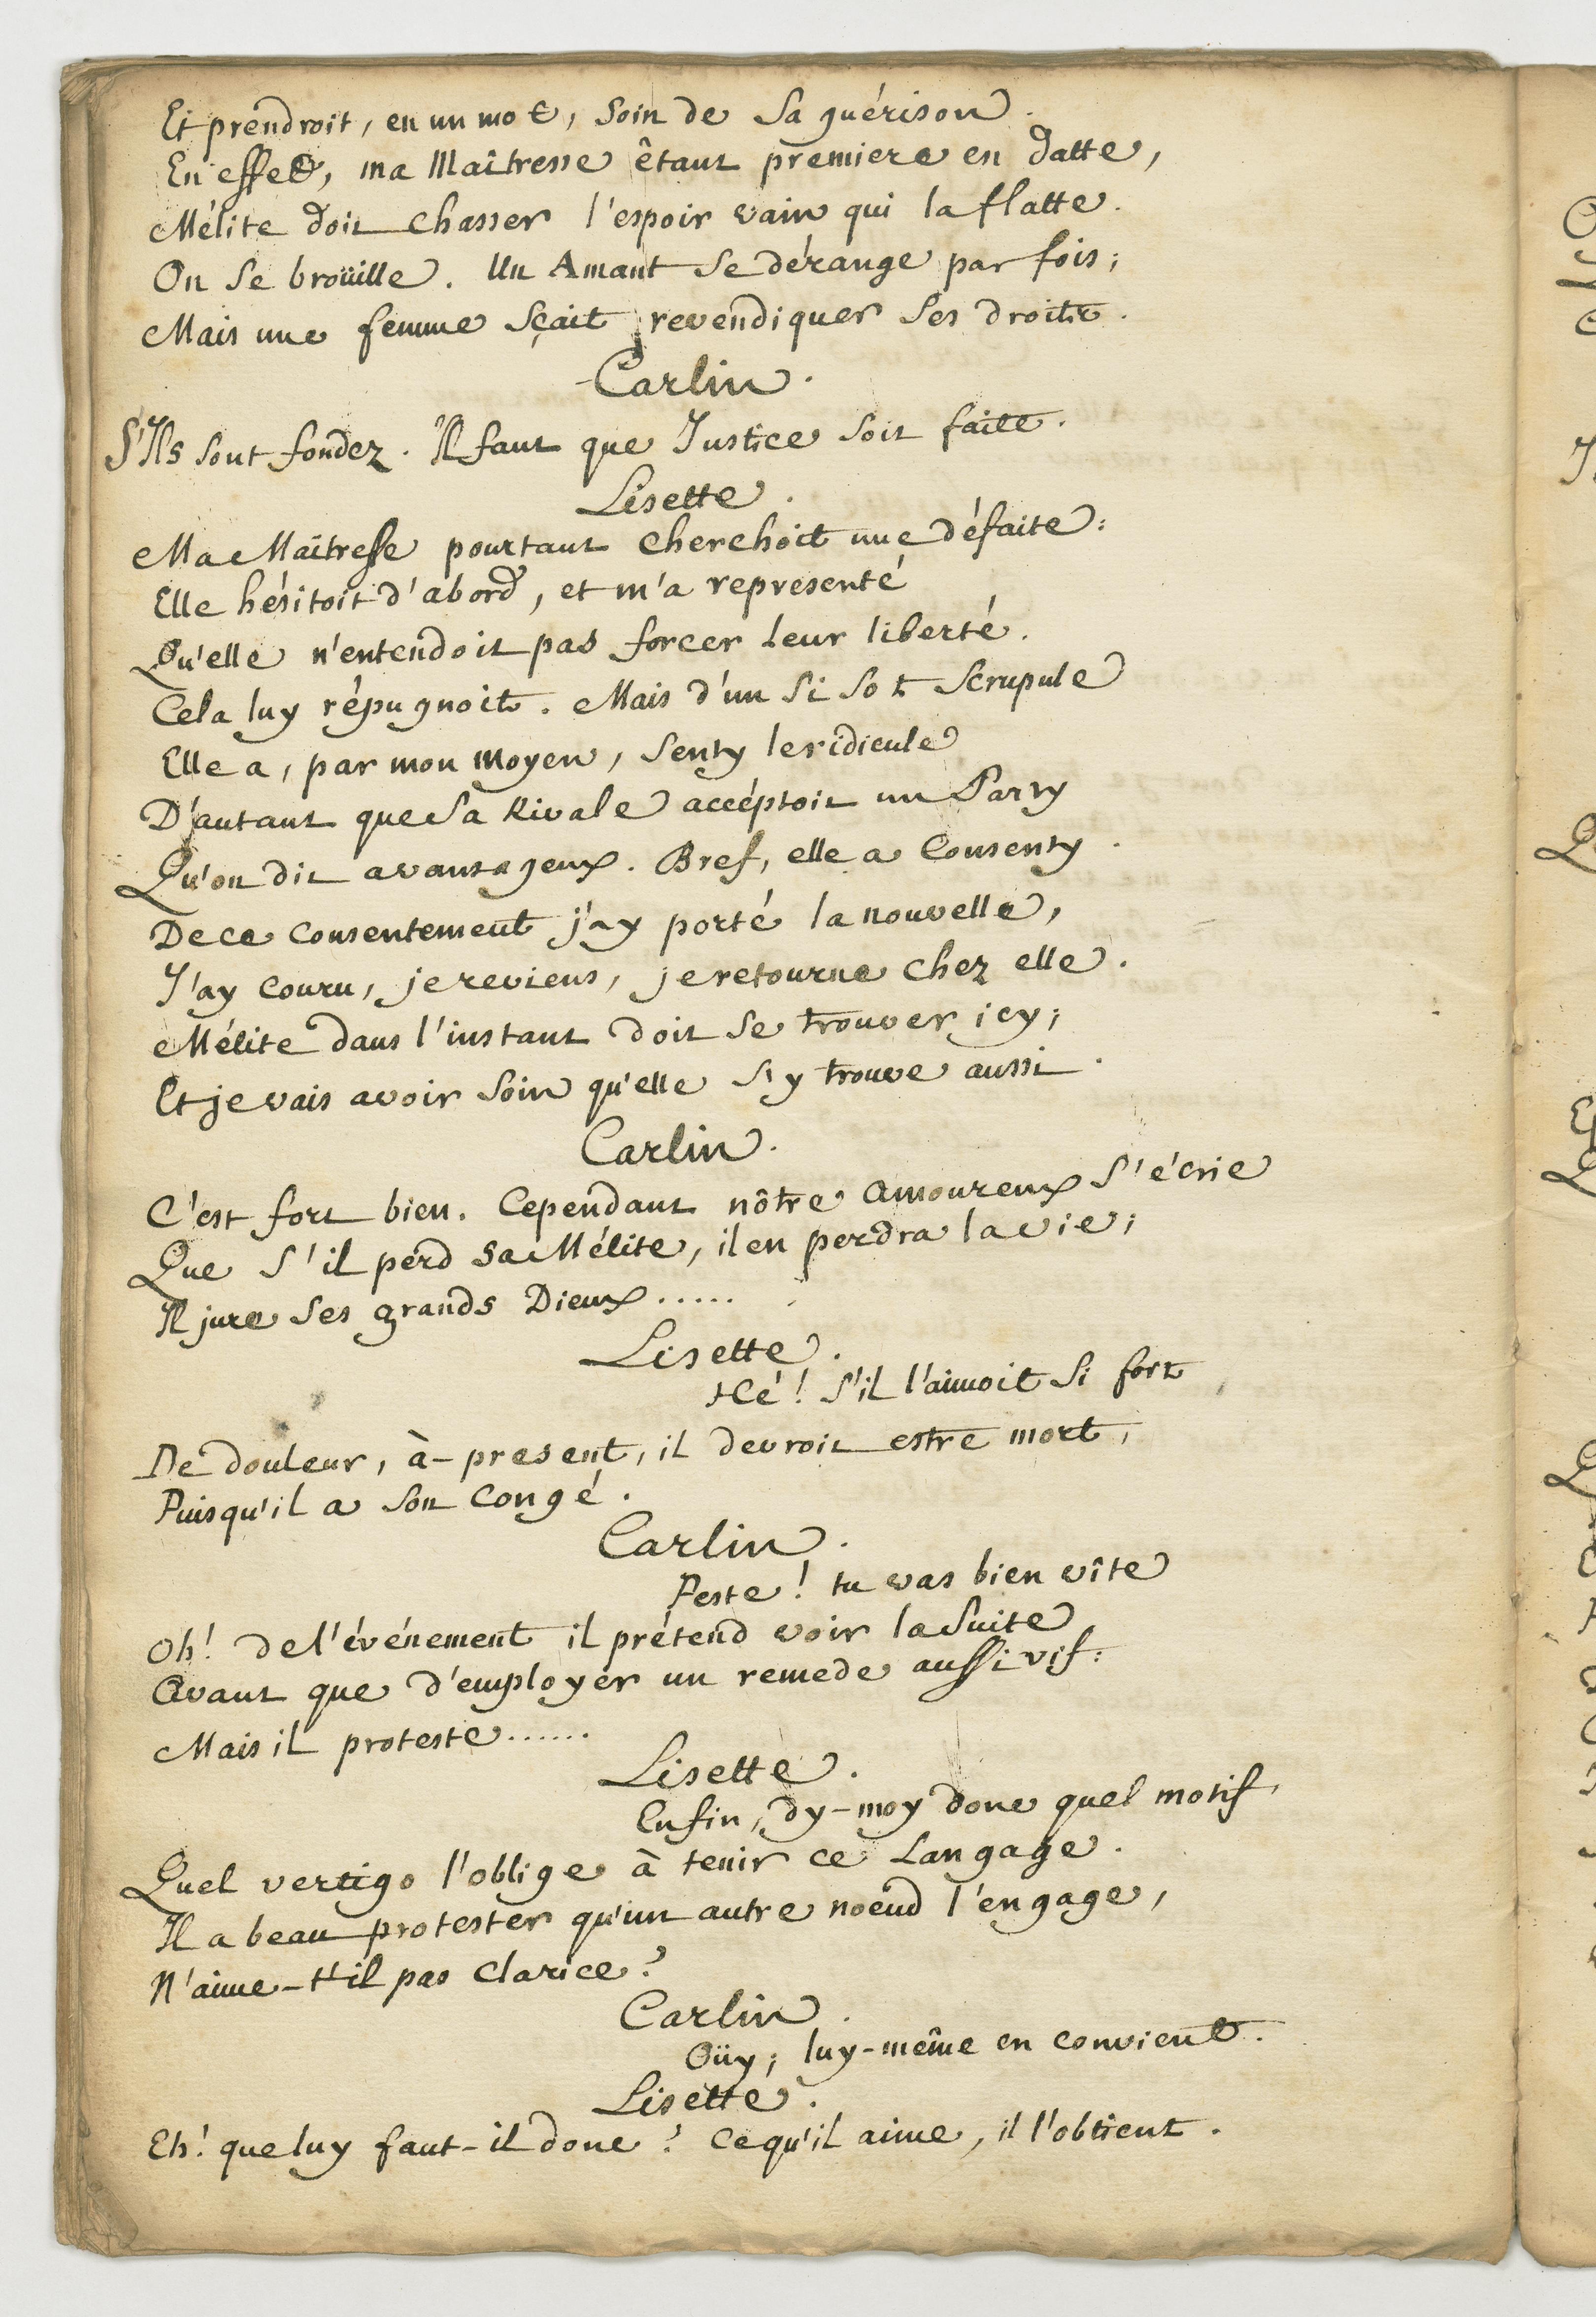 Et prendroit, en un mot, soin de sa guérison.
En effet, ma Maîtresse êtant premiere en datte,
Mélite doit chasser l'espoir vain qui la flatte.
On se broüille. Un Amant se dérange par fois;
Mais une femme sçait revendiquer ses droits.
Carlin.
S'Ils sont fondez. Il faut que Justice soit faite.
Lisette.
Ma Maîtresse pourtant cherchoit une défaite:
Elle hésitoit d'abord, et m'a representé
Qu'elle n'entendoit pas forcer leur liberté.
Cela luy répugnoit. Mais d'un si sot scrupule
Elle a, par mon moyen, senty le ridicule
D'autant que sa Rivale accéptoit un Party
Qu'on dit avantageux. Bref, elle a consenty.
De ce consentement j'ay porté la nouvelle,
J'ay couru, je reviens, je retourne chez elle.
Mélite dans l'instant doit se trouver icy;
Et je vais avoir soin qu'elle s'y trouve aussi.
Carlin.
C'est fort bien. Cependant nôtre amoureux s'écrie
Que s'il perd sa Mélite, il en perdra la vie;
Il jure ses grands Dieux.....
Lisette.
Hé! s'il l'aimoit si fort,
De douleur, à-present, il devroit estre mort,
Puisqu'il a son congé.
Carlin.
Peste! tu vas bien vîte
Oh! de l'événement il prétend voir la suite,
Avant que d'employer un remede aussi vif:
Mais il proteste......
Lisette.
Enfin, dy-moy donc quel motif,
Quel vertigo l'oblige à tenir ce langage.
Il a beau protester qu'un autre noeud l'engage,
N'aime-t'il pas Clarice?
Carlin.
Oüy; luy-même en convient.
Lisette.
Eh! que luy faut-il donc? Ce qu'il aime, il l'obtient.